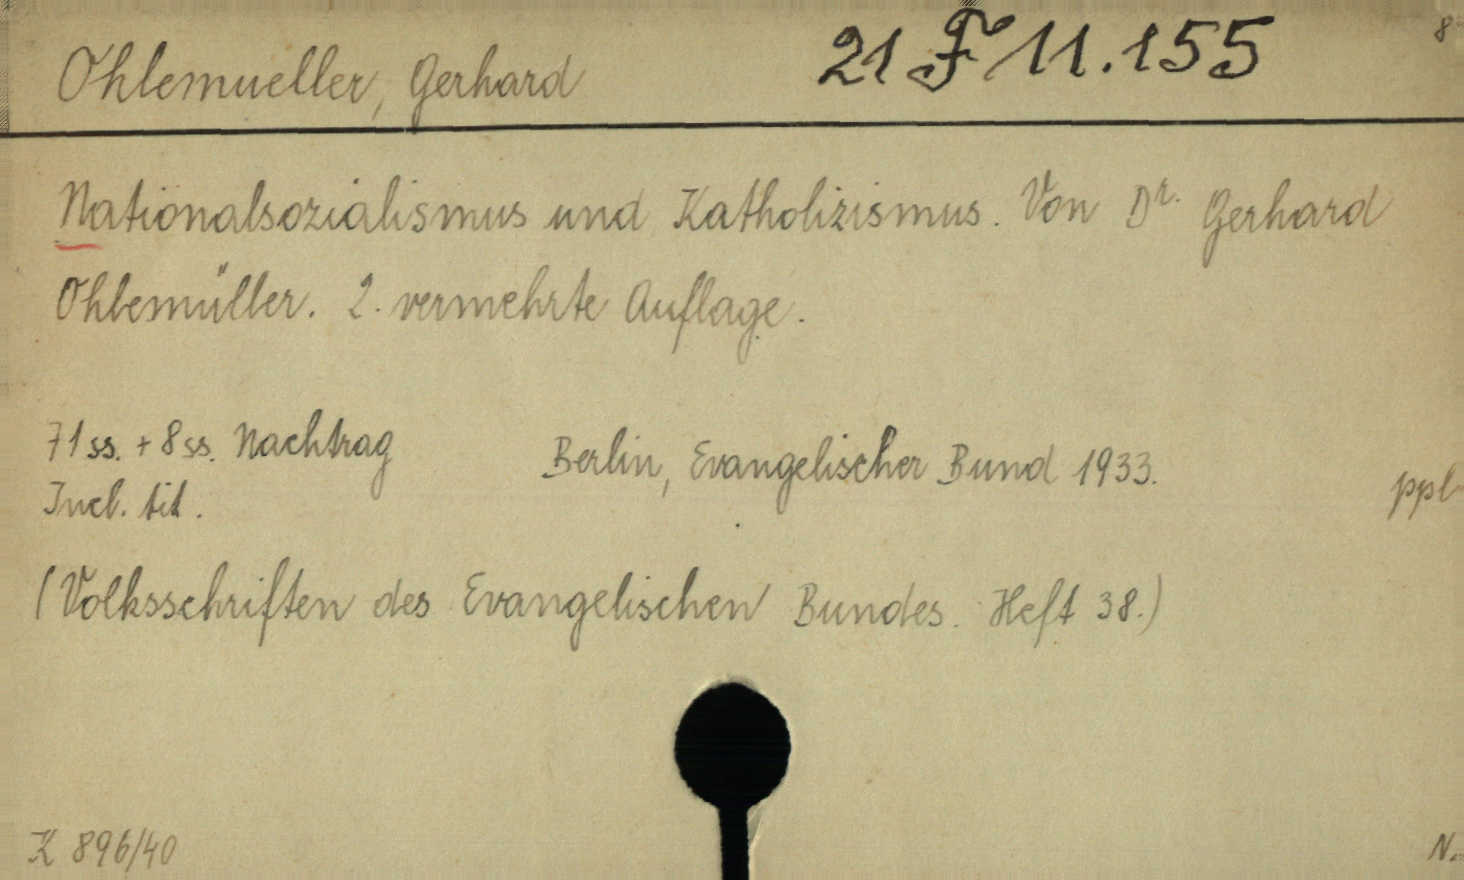 Ohlemueller, Gerhard 21 F 11.155 8°
Nationalsozialismus und Katholizismus. Von Dr. Gerhard
Ohlemüller. 2. vermehrte Auflage.
71 ss. + 8 ss. Nachtrag
Berlin, Evangelischer Bund 1933.
ppl
Incl. tit.
(Volksschriften des Evangelischen Bundes. Heft 38.)
K 896/40